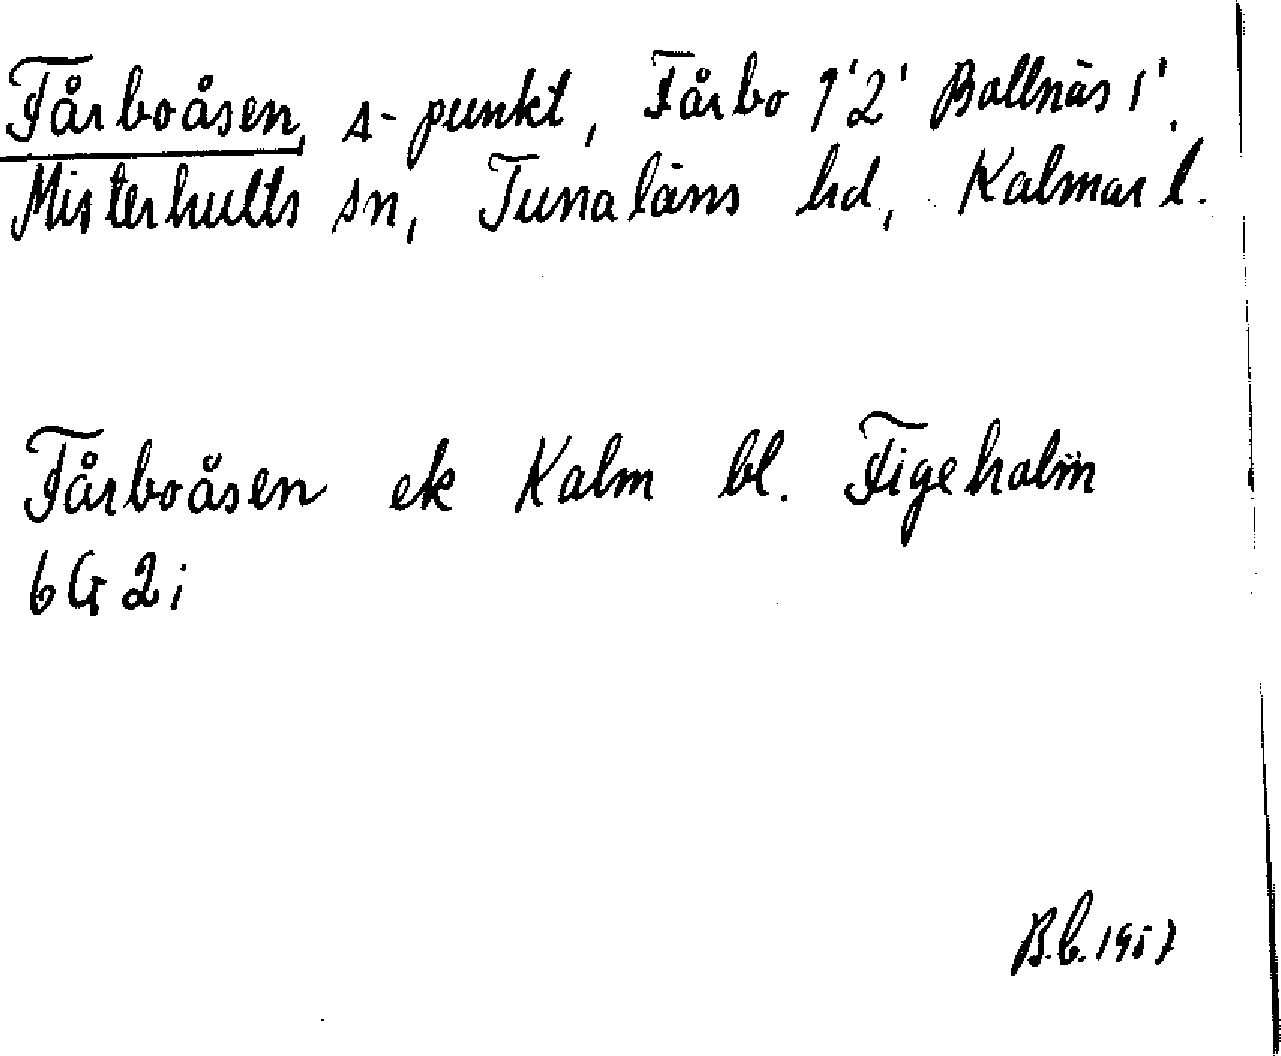 Fårboåsen, s-punkt, Fårbo 1'2' Bollnäs 1'.
Misterhults sn, Tunaläns hd, Kalmar l.
Fårboåsen ek Kalm bl. Figeholm
6G2i
B.L. 1957